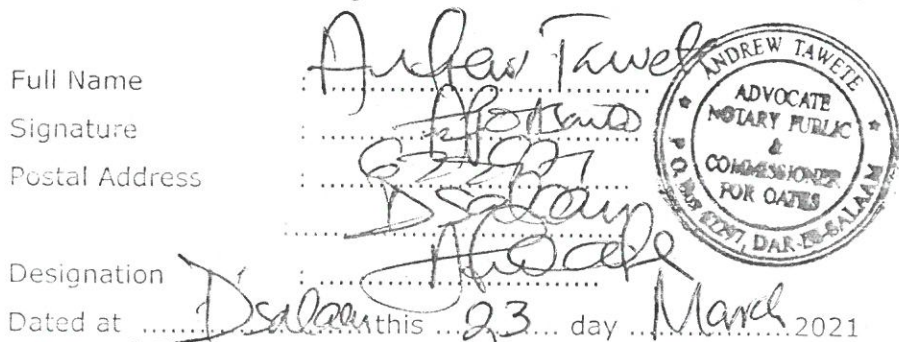 Full Name : Andrew Tawete
Signature :
Postal Address :
Dsalaam
Designation : Advocate
Dated at Dsalaam this 23 day March 2021
ANDREW TAWETE
ADVOCATE
NOTARY PUBLIC
&
COMMISSIONER
FOR OATES
DAR-ES-SALAAM